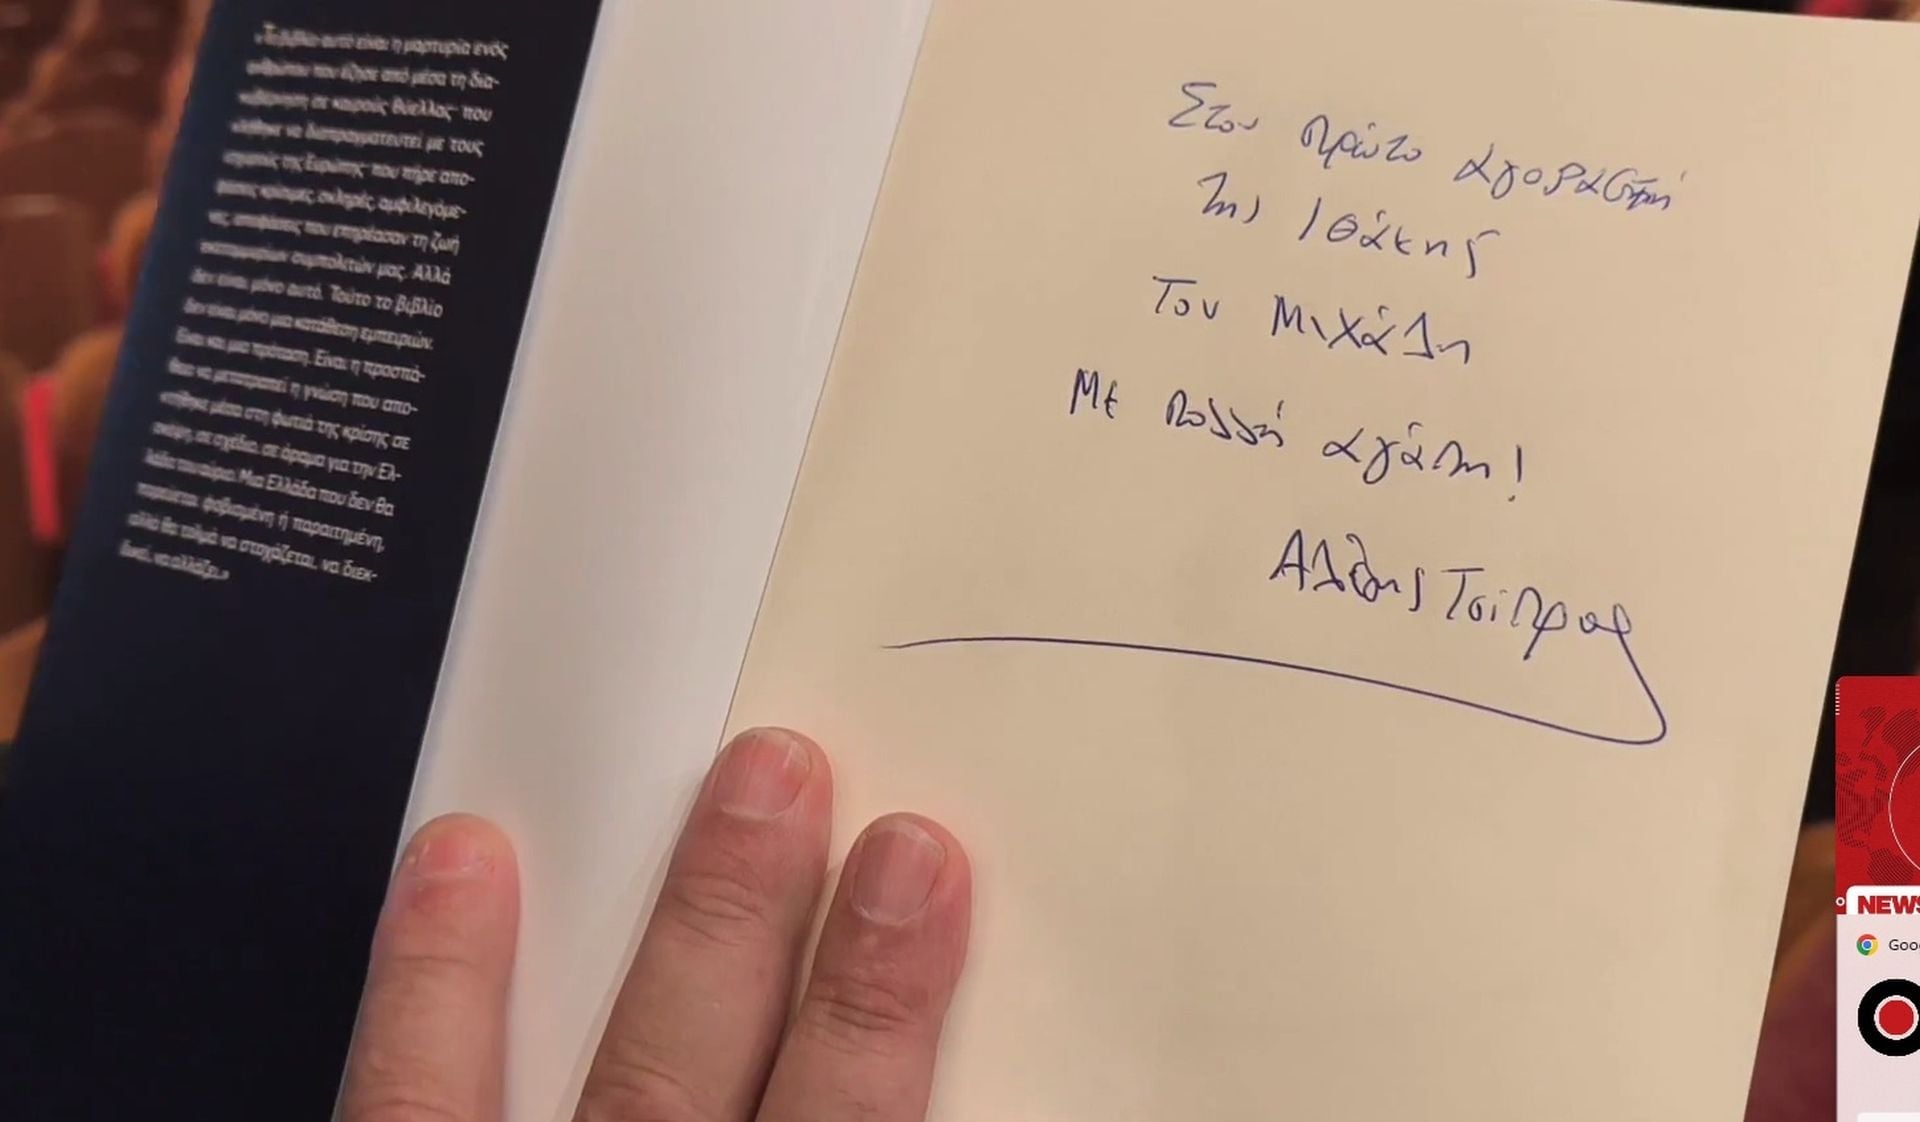 «Το βιβλίο αυτό είναι η μαρτυρία ενός
ανθρώπου που έζησε από μέσα τη δια-
κυβέρνηση σε καιρούς θύελλας· που
κλήθηκε να διαπραγματευτεί με τους
ισχυρούς της Ευρώπης· που πήρε απο-
φάσεις κρίσιμες, σκληρές, αμφιλεγόμε-
νες, αποφάσεις που επηρέασαν τη ζωή
εκατομμυρίων συμπολιτών μας. Αλλά
δεν είναι μόνο αυτό. Τούτο το βιβλίο
δεν είναι μόνο μια κατάθεση εμπειριών.
Είναι και μια πρόταση. Είναι η προσπά-
θεια να μετατραπεί η γνώση που απο-
κτήθηκε μέσα στη φωτιά της κρίσης σε
σκέψη, σε σχέδιο, σε όραμα για την Ελ-
λάδα του αύριο. Μια Ελλάδα που δεν θα
πορεύεται φοβισμένη ή παραιτημένη,
αλλά θα τολμά να στοχάζεται, να διεκ-
δικεί, να αλλάζει.»
Στον Πρώτο αγοραστή
της Ιθάκης
Τον Μιχάλη
Με πολλή αγάπη!
Αλέξης Τσίπρας
NEWS
Goo